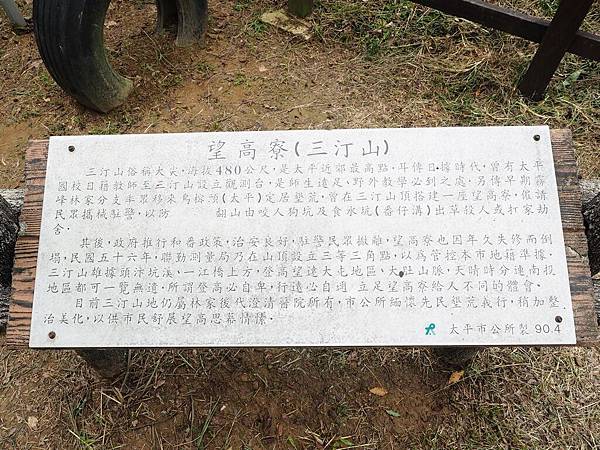 望高寮(三汀山)
三汀山俗稱大尖,海拔480公尺,是太平近郊最高點.耳傳日據時代,曾有太平
國校日籍教師至三汀山設立觀測台,是師生遠足,野外教學必到之處.另傳早期霧
峰林家分支率眾移來鳥松頭(太平)定居墾荒,曾在三汀山頂搭建一座望高寮,僱請
民眾攜械駐警,以防 翻山由咬人狗坑及食水坑(番仔溝)出草殺人或打家劫
舍.
其後,政府推行和番政策,治安良好,駐警民眾撤離,望高寮也因年久失修而倒
塌,民國五十六年,聯勤測量局乃在山頂設立三等三角點,以為管控本市地籍準據.
三汀山雄據頭汴坑溪、一江橋上方,登高望遠大屯地區,大肚山脈,天晴時分連南投
地區都可一覽無遺.所謂登高必自卑,行遠必自邇,立足望高寮給人不同的體會.
目前三汀山地仍屬林家後代澄清醫院所有,市公所緬懷先民墾荒義行,稍加整
治美化,以供市民舒展望高思幕情愫.
太平市公所製 90.4